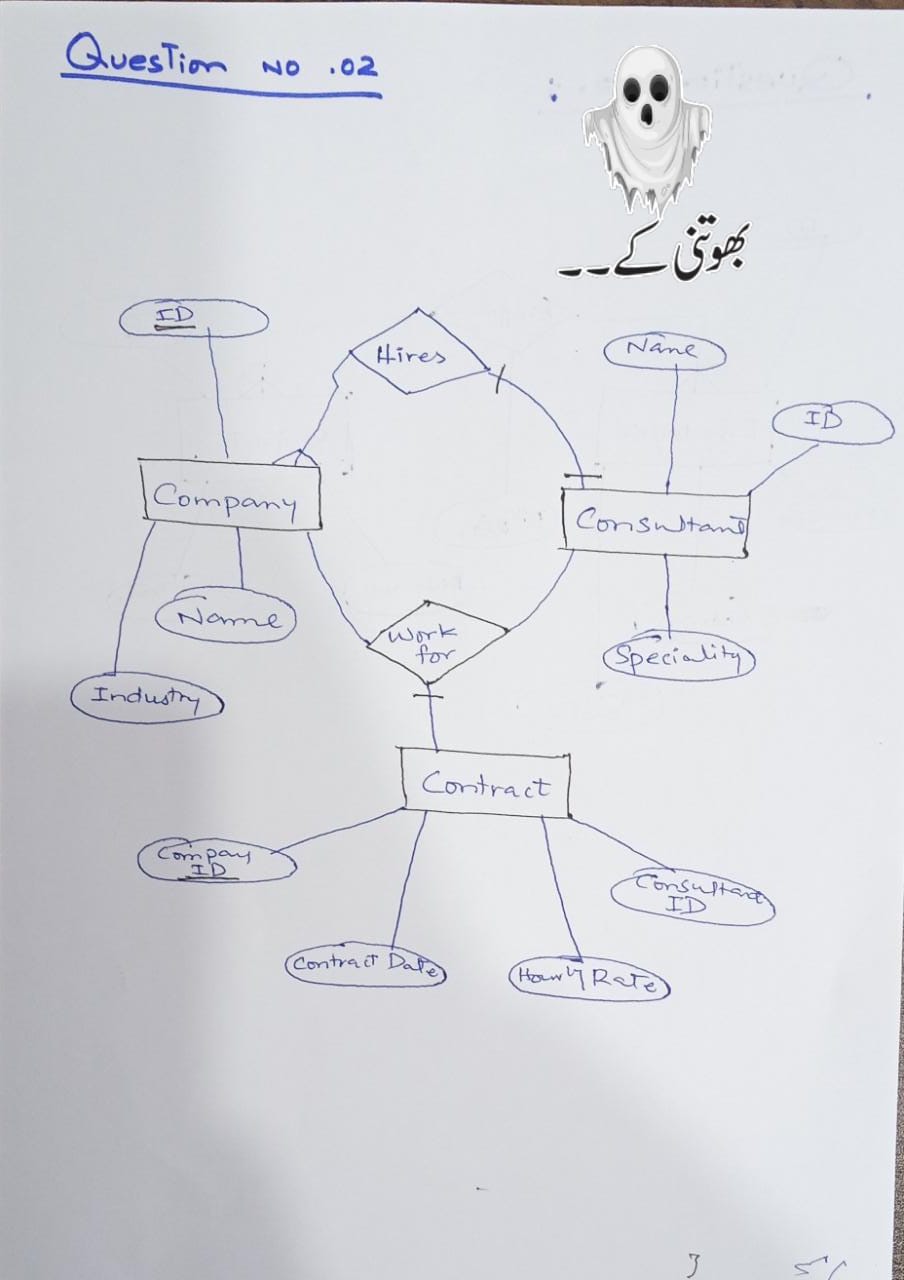 Question NO .02
بھوتنی کے۔۔
ID
Hires
Name
ID
Company
Consultant
Name
Work
for
Speciality
Industry
Contract
Compay
ID
Consultant
ID
Contract Date
Hourly Rate
3